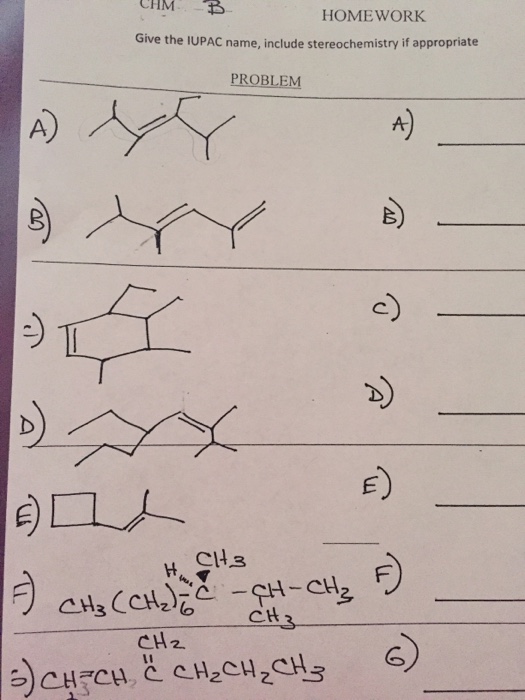 CHM B
HOMEWORK
Give the IUPAC name, include stereochemistry if appropriate
PROBLEM
A) A)
B) B)
C)
D) D)
E) E)
H CH3
F) CH3(CH2)6C-CH-CH3 F)
CH3
CH2
CH3CH C CH2CH2CH3 G)